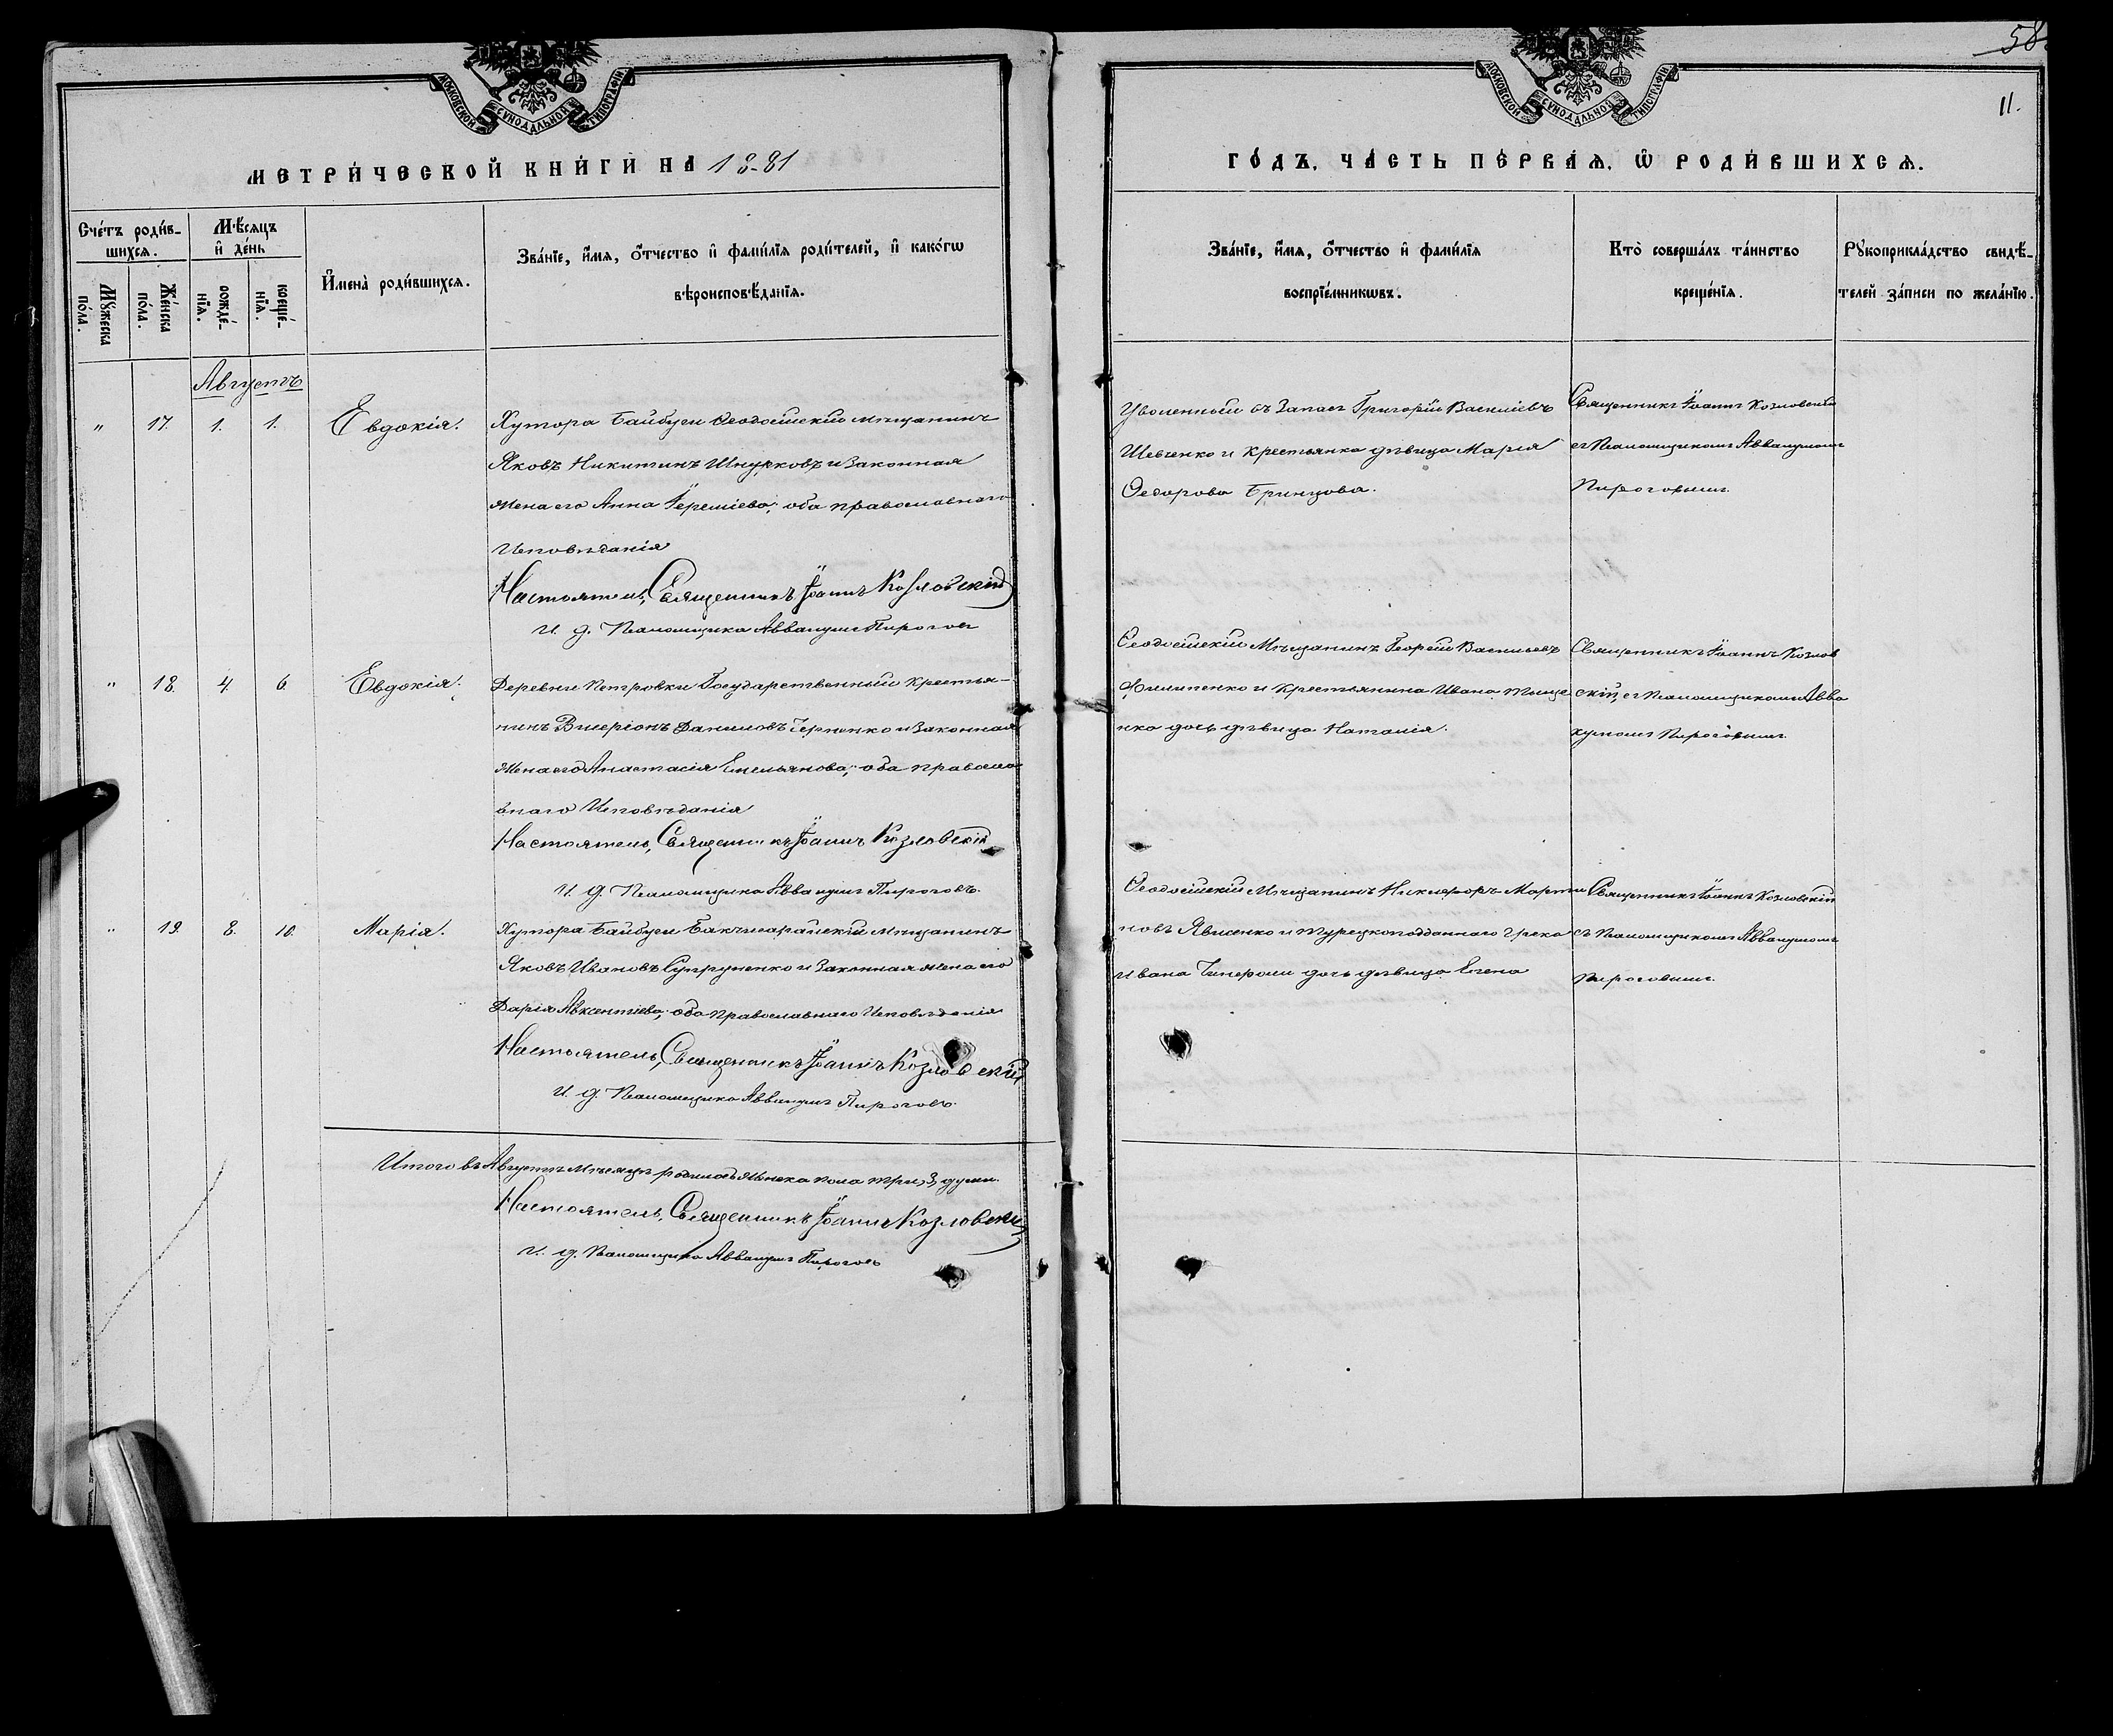 58.
11.
МОСКОВСКОЙ СѴНОДАЛЬНОЙ ТИПОГРАФІИ
МОСКОВСКОЙ СѴНОДАЛЬНОЙ ТИПОГРАФІИ
МЕТРИ́ЧЕСКОЙ КНИ́ГИ НА 1881
ГО́ДЪ, ЧА́СТЬ ПЕ́РВАѦ, Ѡ РОДИ́ВШИХСѦ.
Сче́тъ роди́в-
шихсѧ.
Мꙋ́жеска по́ла.
Же́нска по́ла.
Мѣ́сѧцъ
и҆ де́нь
рожде́-нїѧ.
креще́-нїѧ.
И҆мена̀ роди́вшихсѧ.
Зва́нїе, и҆́мѧ, ѻ҆́тчество и҆ фами́лїѧ роди́телей, и҆ како́гѡ
вѣроисповѣ́данїѧ.
Зва́нїе, и҆́мѧ, ѻ҆́тчество и҆ фами́лїѧ
воспрїе́мникѡвъ.
Кто̀ соверша́лъ та́инство
креще́нїѧ.
Рꙋкоприкла́дство свидѣ́-
телей за́писи по жела́нїю.
Августъ
" 17. 1. 1. Евдокія.
Хутора Байбуги Ѳеодосійскій мѣщанинъ
Яковъ Никитинъ Шнурковъ и законная
жена его Анна Іереміева; оба православнаго
исповѣданія
Настоятель, Священникъ Іоаннъ Козловскій
И. д. Псаломщика Аввакумъ Пироговъ
Уволенный въ запасъ Григорій Василіевъ
Шевченко и крестьянка дѣвица Марія
Ѳеодорова Бринцова.
Священникъ Іоаннъ Козловскій
съ Псаломщикомъ Аввакумомъ
Пироговымъ.
" 18. 4. 6. Евдокія.
Деревни Петровки Государственный крестья-
нинъ Даниловъ Черненко и законная
жена его Анастасія Емельянова; оба правосла-
внаго исповѣданія
Настоятель, Священникъ Іоаннъ Козловскій
И. д. Псаломщика Аввакумъ Пироговъ.
Ѳеодосійскій мѣщанинъ Георгій Васильевъ
Филипенко и крестьянина Ивана Тыще
нка дочь дѣвица Наталія.
Священникъ Іоаннъ Козлов
скій, съ Псаломщикомъ Авва
кумомъ Пироговымъ.
" 19. 8. 10. Марія.
Хутора Байбуги Бахчисарайскій мѣщанинъ
Яковъ Ивановъ Супруненко и законная жена его
Дарія Авксентіева; оба православнаго исповѣданія
Настоятель, Священникъ Іоаннъ Козловскій
И. д. Псаломщика Аввакумъ Пироговъ.
Ѳеодосійскій мѣщанинъ Никифоръ Марти
новъ Явисенко и турецкоподданнаго грека
Ивана дочь дѣвица Елена
Священникъ Іоаннъ Козловскій
съ Псаломщикомъ Аввакумомъ
Пироговымъ.
Итого въ Августѣ мѣсяцѣ родилось женска пола три, 3, души.
Настоятель, Священникъ Іоаннъ Козловскій
И. д. Псаломщика Аввакумъ Пироговъ